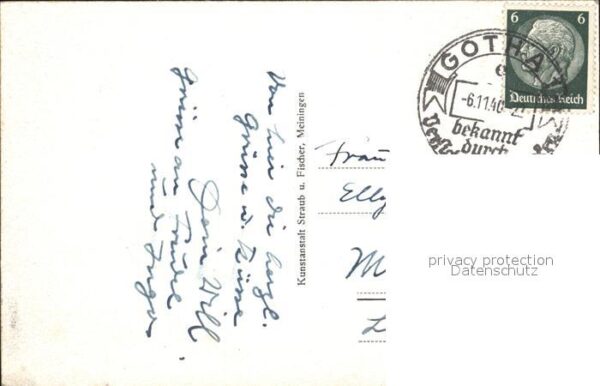 Von hier die herzl.
Grüsse u. Küsse
Dein Will
Grüsse an Traude
und Inga.
Kunstanstalt Straub u. Fischer, Meiningen
6 6
Deutsches Reich
GOTHA
-6.11.40
bekannt
durch
Frau
Elly
privacy protection
Datenschutz